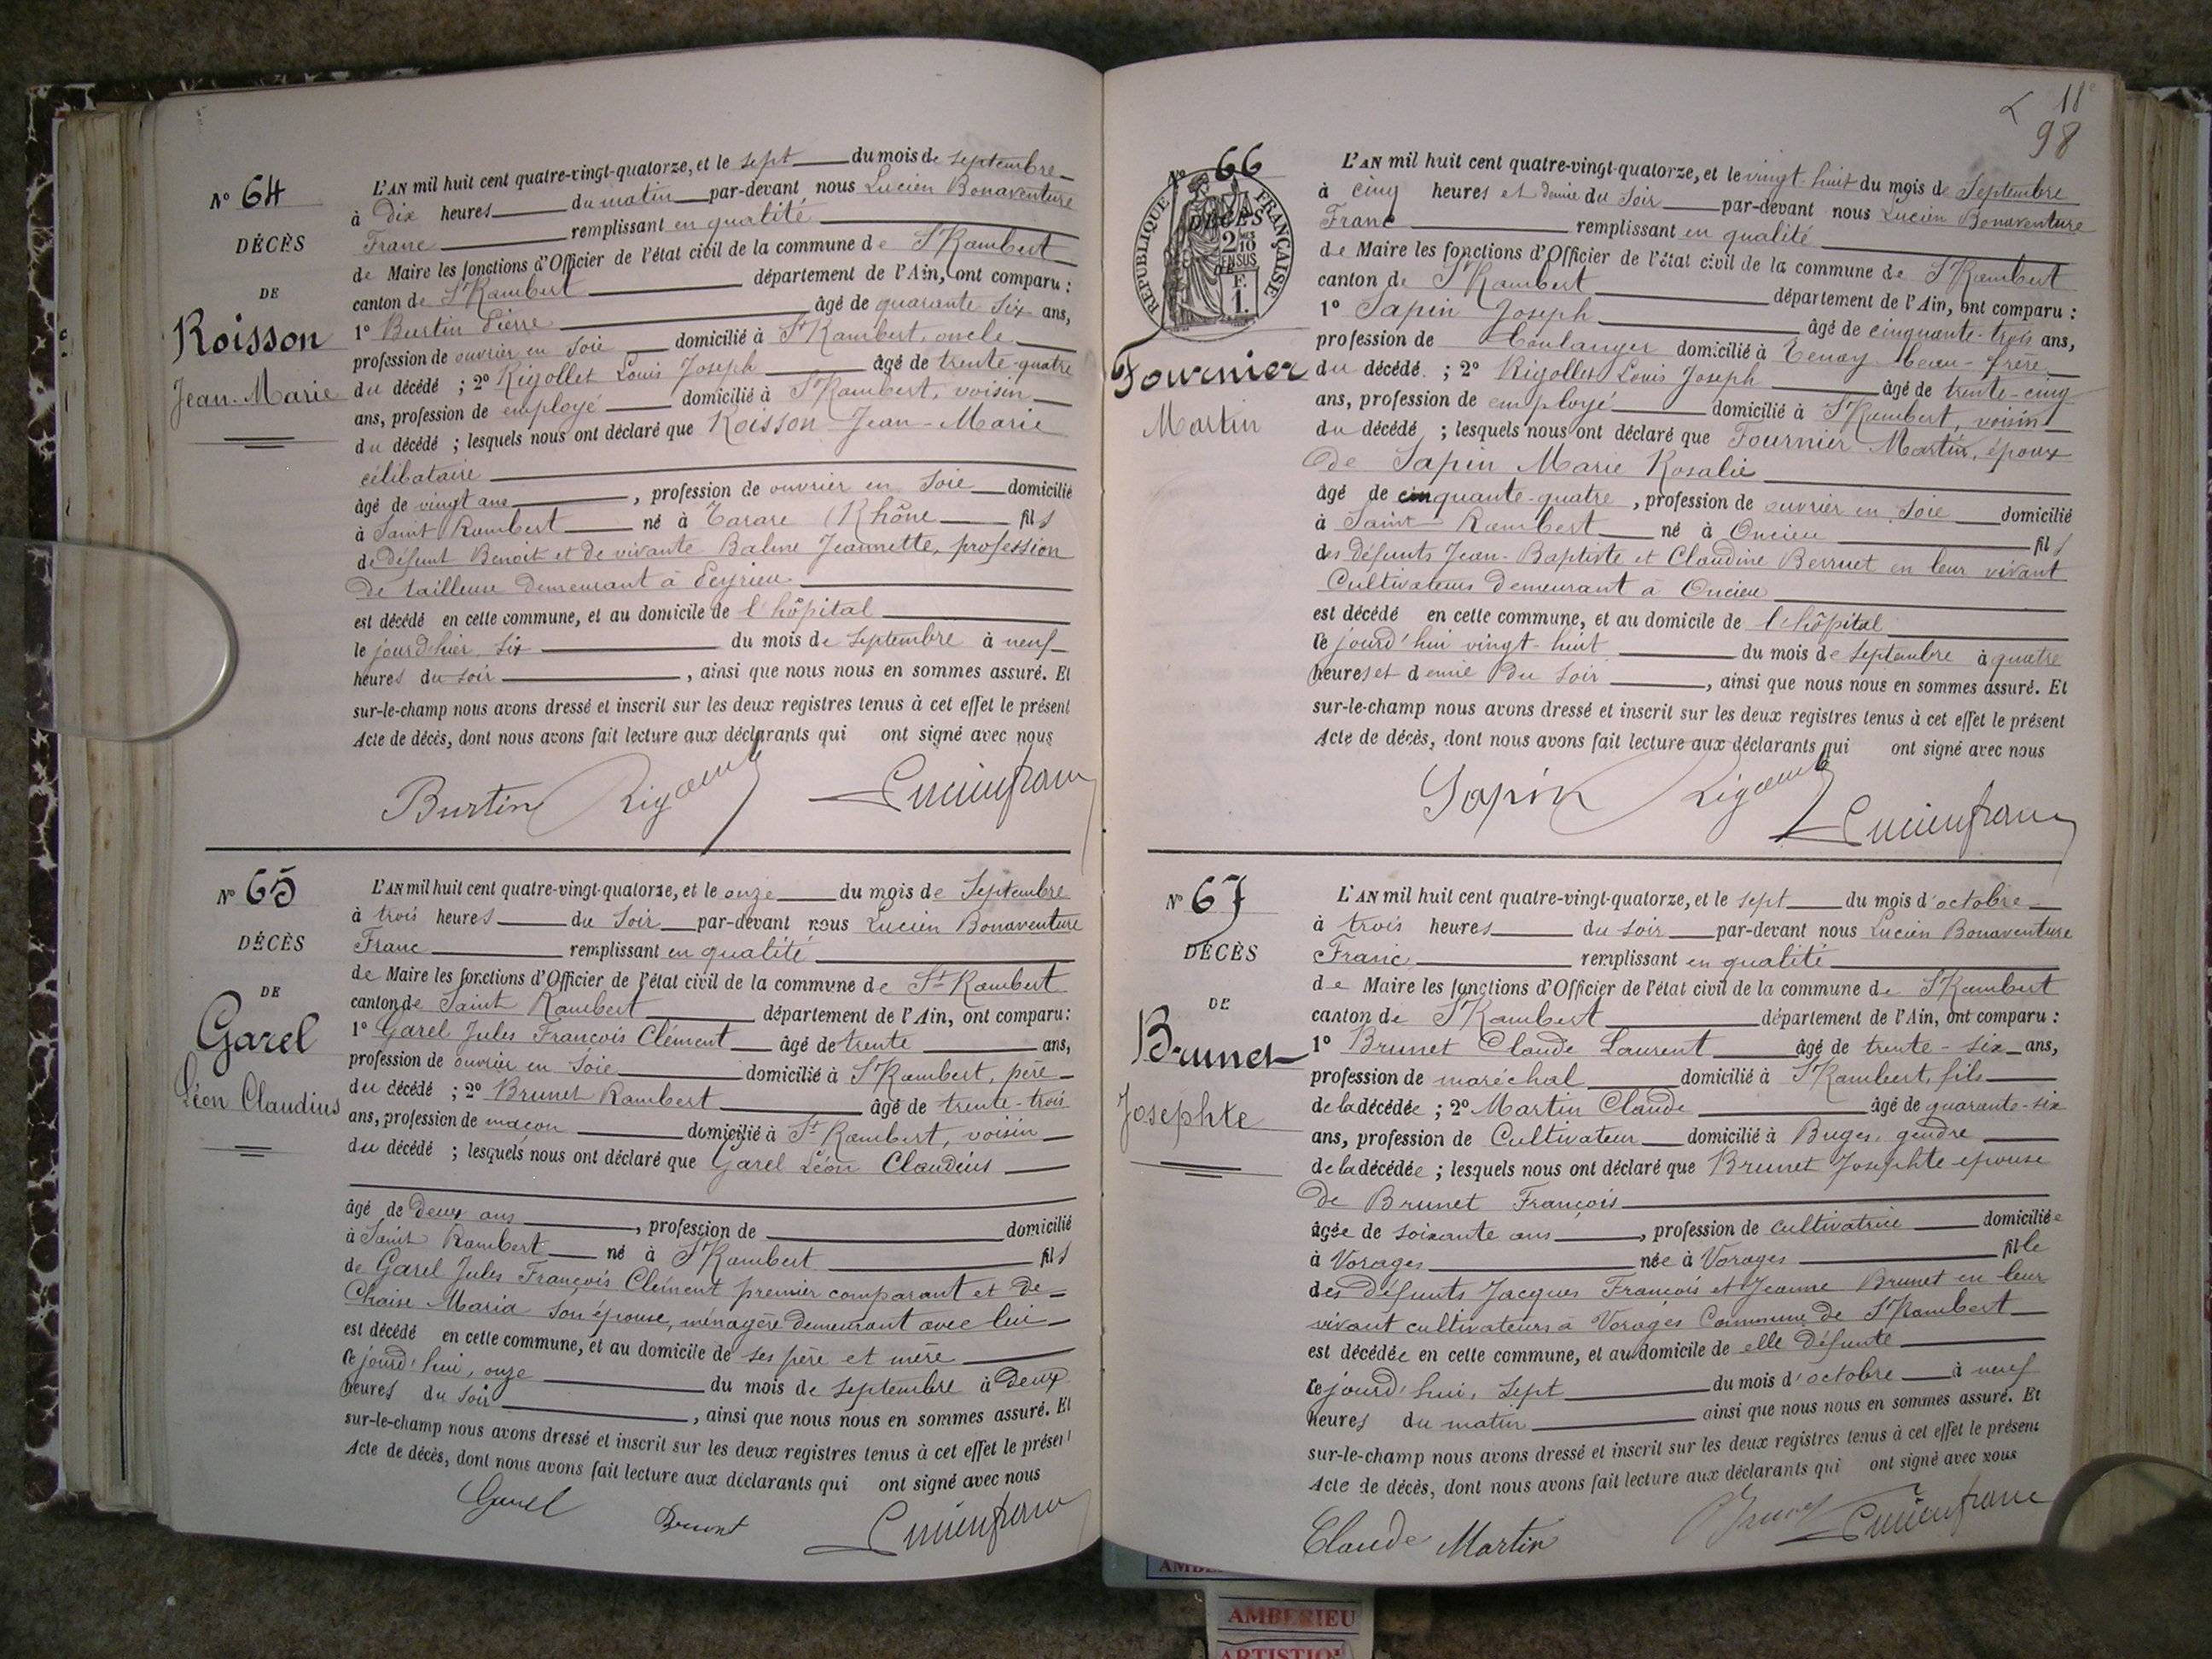 N° 64
DÉCÈS
DE
Roisson
Jean-Marie
L'AN mil huit cent quatre-vingt-quatorze, et le sept du mois de septembre
à Dix heures du matin par-devant nous Lucien Bonaventure
Franc remplissant en qualité
de Maire les fonctions d'Officier de l'état civil de la commune de St Rambert
canton de St Rambert département de l'Ain, ont comparu :
1° Burtin Pierre âgé de quarante six ans,
profession de ouvrier en soie domicilié à St Rambert, oncle
du décédé ; 2° Rigollet Louis Joseph âgé de trente-quatre
ans, profession de employé domicilié à St Rambert, voisin
du décédé ; lesquels nous ont déclaré que Roisson Jean-Marie
célibataire
âgé de vingt ans, profession de ouvrier en soie domicilié
à Saint Rambert né à Tarare (Rhône fils
de défunt Benoit et de vivante Balme Jeannette, profession
de tailleuse demeurant à
est décédé en cette commune, et au domicile de l'hôpital
le jour d'hier six du mois de septembre à neuf
heures du soir, ainsi que nous nous en sommes assuré. Et
sur-le-champ nous avons dressé et inscrit sur les deux registres tenus à cet effet le présent
Acte de décès, dont nous avons fait lecture aux déclarants qui ont signé avec nous
Burtin Lucien franc
N° 65
DÉCÈS
DE
Garel
Léon Claudius
L'AN mil huit cent quatre-vingt-quatorze, et le onze du mois de Septembre
à trois heures du soir par-devant nous Lucien Bonaventure
Franc remplissant en qualité
de Maire les fonctions d'Officier de l'état civil de la commune de St Rambert
canton de Saint Rambert département de l'Ain, ont comparu :
1° Garel Jules François Clément âgé de trente ans,
profession de ouvrier en soie domicilié à St Rambert, père
du décédé ; 2° Brunet Rambert âgé de trente-trois
ans, profession de maçon domicilié à St Rambert, voisin
du décédé ; lesquels nous ont déclaré que Garel Léon Claudius
âgé de deux ans, profession de domicilié
à Saint Rambert né à St Rambert fils
de Garel Jules François Clément premier comparant et de
Chaise Maria son épouse, ménagère demeurant avec lui
est décédé en cette commune, et au domicile de ses père et mère
ce jourd'hui, onze du mois de septembre à deux
heures du soir, ainsi que nous nous en sommes assuré. Et
sur-le-champ nous avons dressé et inscrit sur les deux registres tenus à cet effet le présent
Acte de décès, dont nous avons fait lecture aux déclarants qui ont signé avec nous
Garel Brunet Lucien franc
11e
98
N° 66
DÉCÈS
DE
RÉPUBLIQUE FRANÇAISE
2/10 EN SUS
1 F.
Fournier
Martin
L'AN mil huit cent quatre-vingt-quatorze, et le vingt-huit du mois de Septembre
à cinq heures et demie du soir par-devant nous Lucien Bonaventure
Franc remplissant en qualité
de Maire les fonctions d'Officier de l'état civil de la commune de St Rambert
canton de St Rambert département de l'Ain, ont comparu :
1° Sapin Joseph âgé de cinquante-trois ans,
profession de boulanger domicilié à Tenay beau-frère
du décédé ; 2° Rigollet Louis Joseph âgé de trente-cinq
ans, profession de employé domicilié à St Rambert, voisin
du décédé ; lesquels nous ont déclaré que Fournier Martin, époux
de Sapin Marie Rosalie
âgé de cinquante-quatre, profession de ouvrier en soie domicilié
à Saint Rambert né à Oncieu fils
des défunts Jean-Baptiste et Claudine Berruet en leur vivant
Cultivateurs demeurant à Oncieu
est décédé en cette commune, et au domicile de l'hôpital
ce jourd'hui vingt-huit du mois de septembre à quatre
heures et demie du soir, ainsi que nous nous en sommes assuré. Et
sur-le-champ nous avons dressé et inscrit sur les deux registres tenus à cet effet le présent
Acte de décès, dont nous avons fait lecture aux déclarants qui ont signé avec nous
Sapin Lucien franc
N° 67
DÉCÈS
DE
Brunet
Josephte
L'AN mil huit cent quatre-vingt-quatorze, et le sept du mois d'octobre
à trois heures du soir par-devant nous Lucien Bonaventure
Franc remplissant en qualité
de Maire les fonctions d'Officier de l'état civil de la commune de St Rambert
canton de St Rambert département de l'Ain, ont comparu :
1° Brunet Claude Laurent âgé de trente-six ans,
profession de maréchal domicilié à St Rambert, fils
de la décédée ; 2° Martin Claude âgé de quarante-six
ans, profession de Cultivateur domicilié à Buges, gendre
de la décédée ; lesquels nous ont déclaré que Brunet Josephte épouse
de Brunet François
âgée de soixante ans, profession de cultivatrice domiciliée
à Vorages née à Vorages fille
des défunts Jacques François et Jeanne Brunet en leur
vivant cultivateurs à Vorages Commune de St Rambert
est décédée en cette commune, et au domicile de elle défunte
ce jourd'hui, sept du mois d'octobre à neuf
heures du matin ainsi que nous nous en sommes assuré. Et
sur-le-champ nous avons dressé et inscrit sur les deux registres tenus à cet effet le présent
Acte de décès, dont nous avons fait lecture aux déclarants qui ont signé avec nous
Claude Martin Lucien franc
AMBERIEU